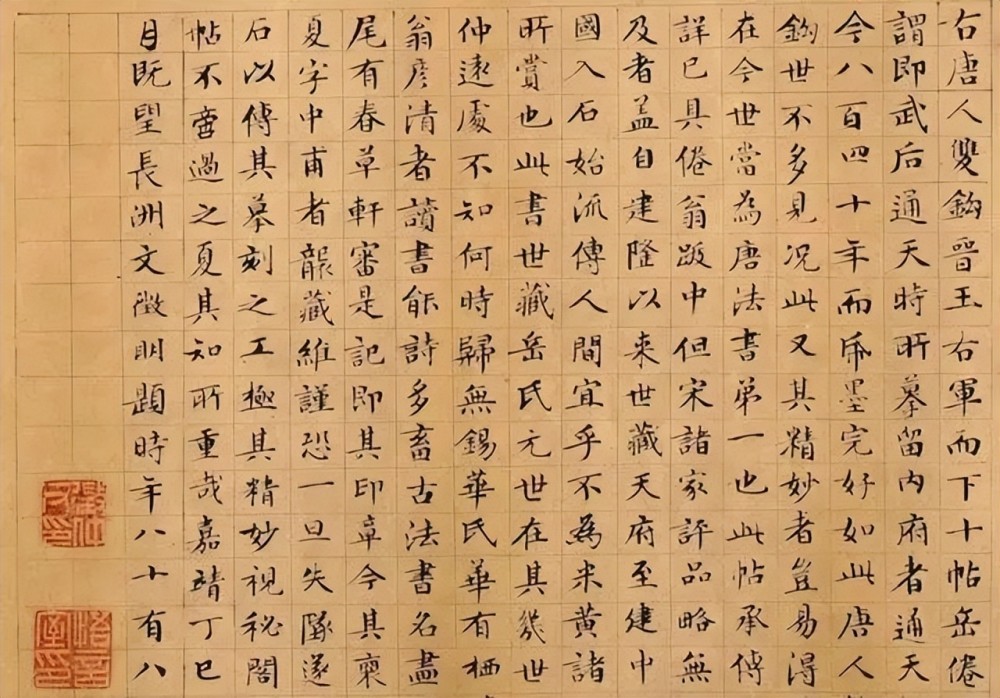 右唐人雙鈎晉王右軍而下十帖岳倦
謂即武后通天時所摹留内府者通天
今八百四十年而帋墨完好如此唐人
鈎世不多見况此又其精妙者豈易得
在今世當為唐法書弟一也此帖承傳
詳已具倦翁跋中但宋諸家評品略無
及者盖自建隆以来世藏天府至建中
國入石始流傳人間宜乎不為米黄諸
所賞也此書世藏岳氏元世在其幾世
仲遠處不知何時歸無錫華氏華有栖
翁彦清者讀書能詩多畜古法書名畫
尾有春草軒審是記即其印章今其裔
夏字中甫者龍藏維謹恐一旦失隊遂
石以傳其摹刻之工極其精妙視秘閣
帖不啻過之夏其知所重哉嘉靖丁巳
月既望長洲文徴明題時年八十有八
徵仲父印
悟言室印